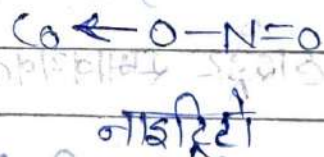 Co ← O — N = O
नाइट्रिटो